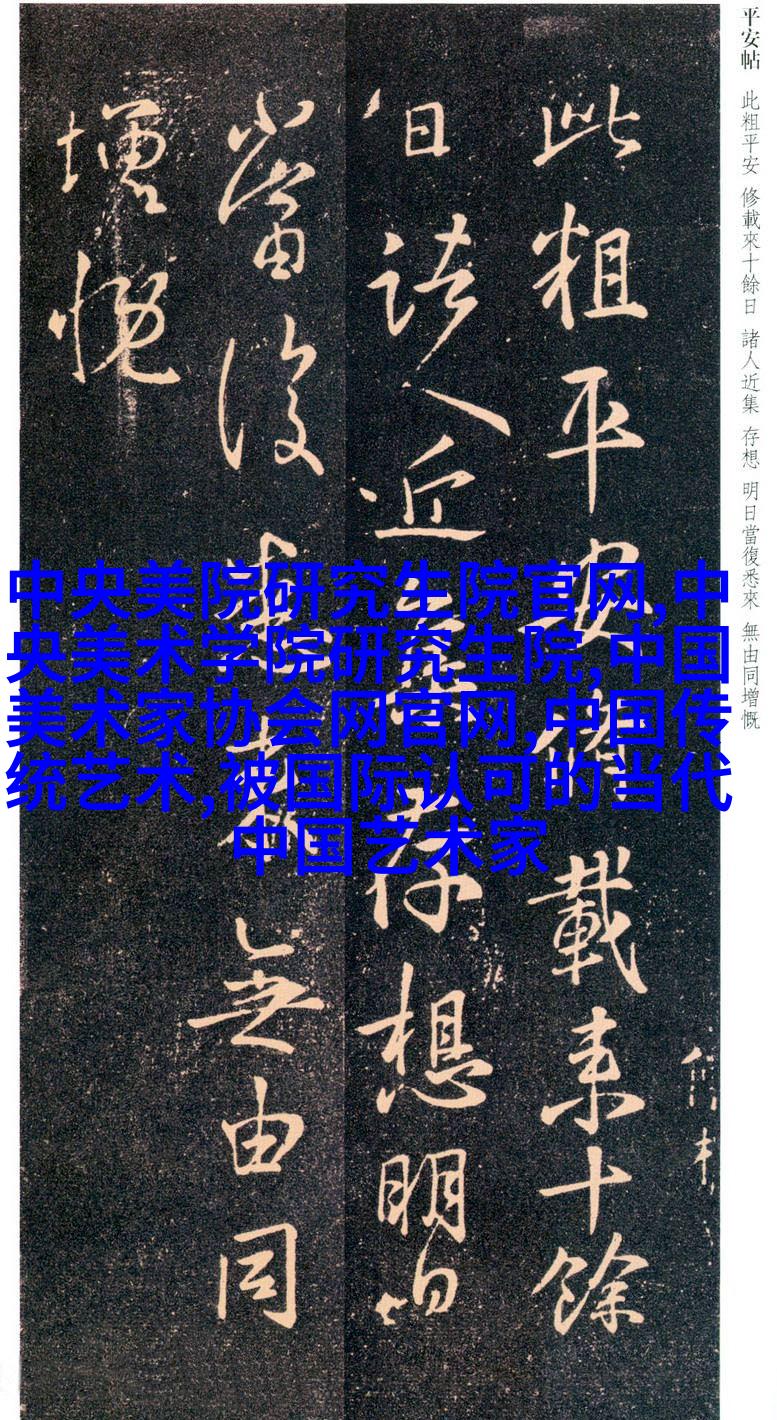 平安帖 此粗平安 修載來十餘日 諸人近集 存想 明日當復悉來 無由同增慨
此粗平安修載来十餘
日諸人近集存想明日
當復悉来無由同
增慨
中央美院研究生院官网,中
央美术学院研究生院,中国
美术家协会网官网,中国传
统艺术,被国际认可的当代
中国艺术家